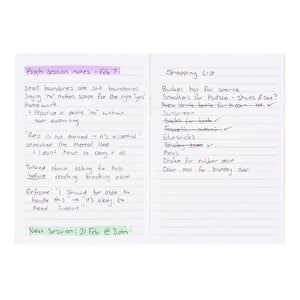 Psych Session notes - Feb 7
Small boundaries are still boundaries
Saying "no" makes space for the right "yes"
Homework
- Practice a same "no" without
over explaining
"Rest is not earned - it's essential"
unpacked the mental load
- I don't have to carry it all
Talked about asking for help
before reaching breaking point
Reframe: "I should be able to
handle this" → "It's okay to
need support"
Next Session: 21 Feb @ 3pm
Shopping List
Bucket hat for
Sneakers for Hudson - Shoes & Sox?
New drink bottle for
Sunscreen
Socks for both ✓
Gluesticks
Sticky tape ✓
Pegs
Stake for rubber plant
Door mat for laundry door